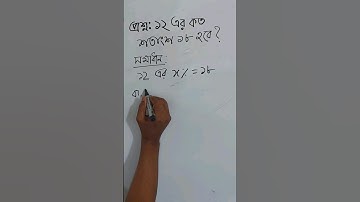 প্রশ্ন: ১২ এর কত
শতাংশ ১৮ হবে?
সমাধান:
১২ এর x% = ১৮
বা